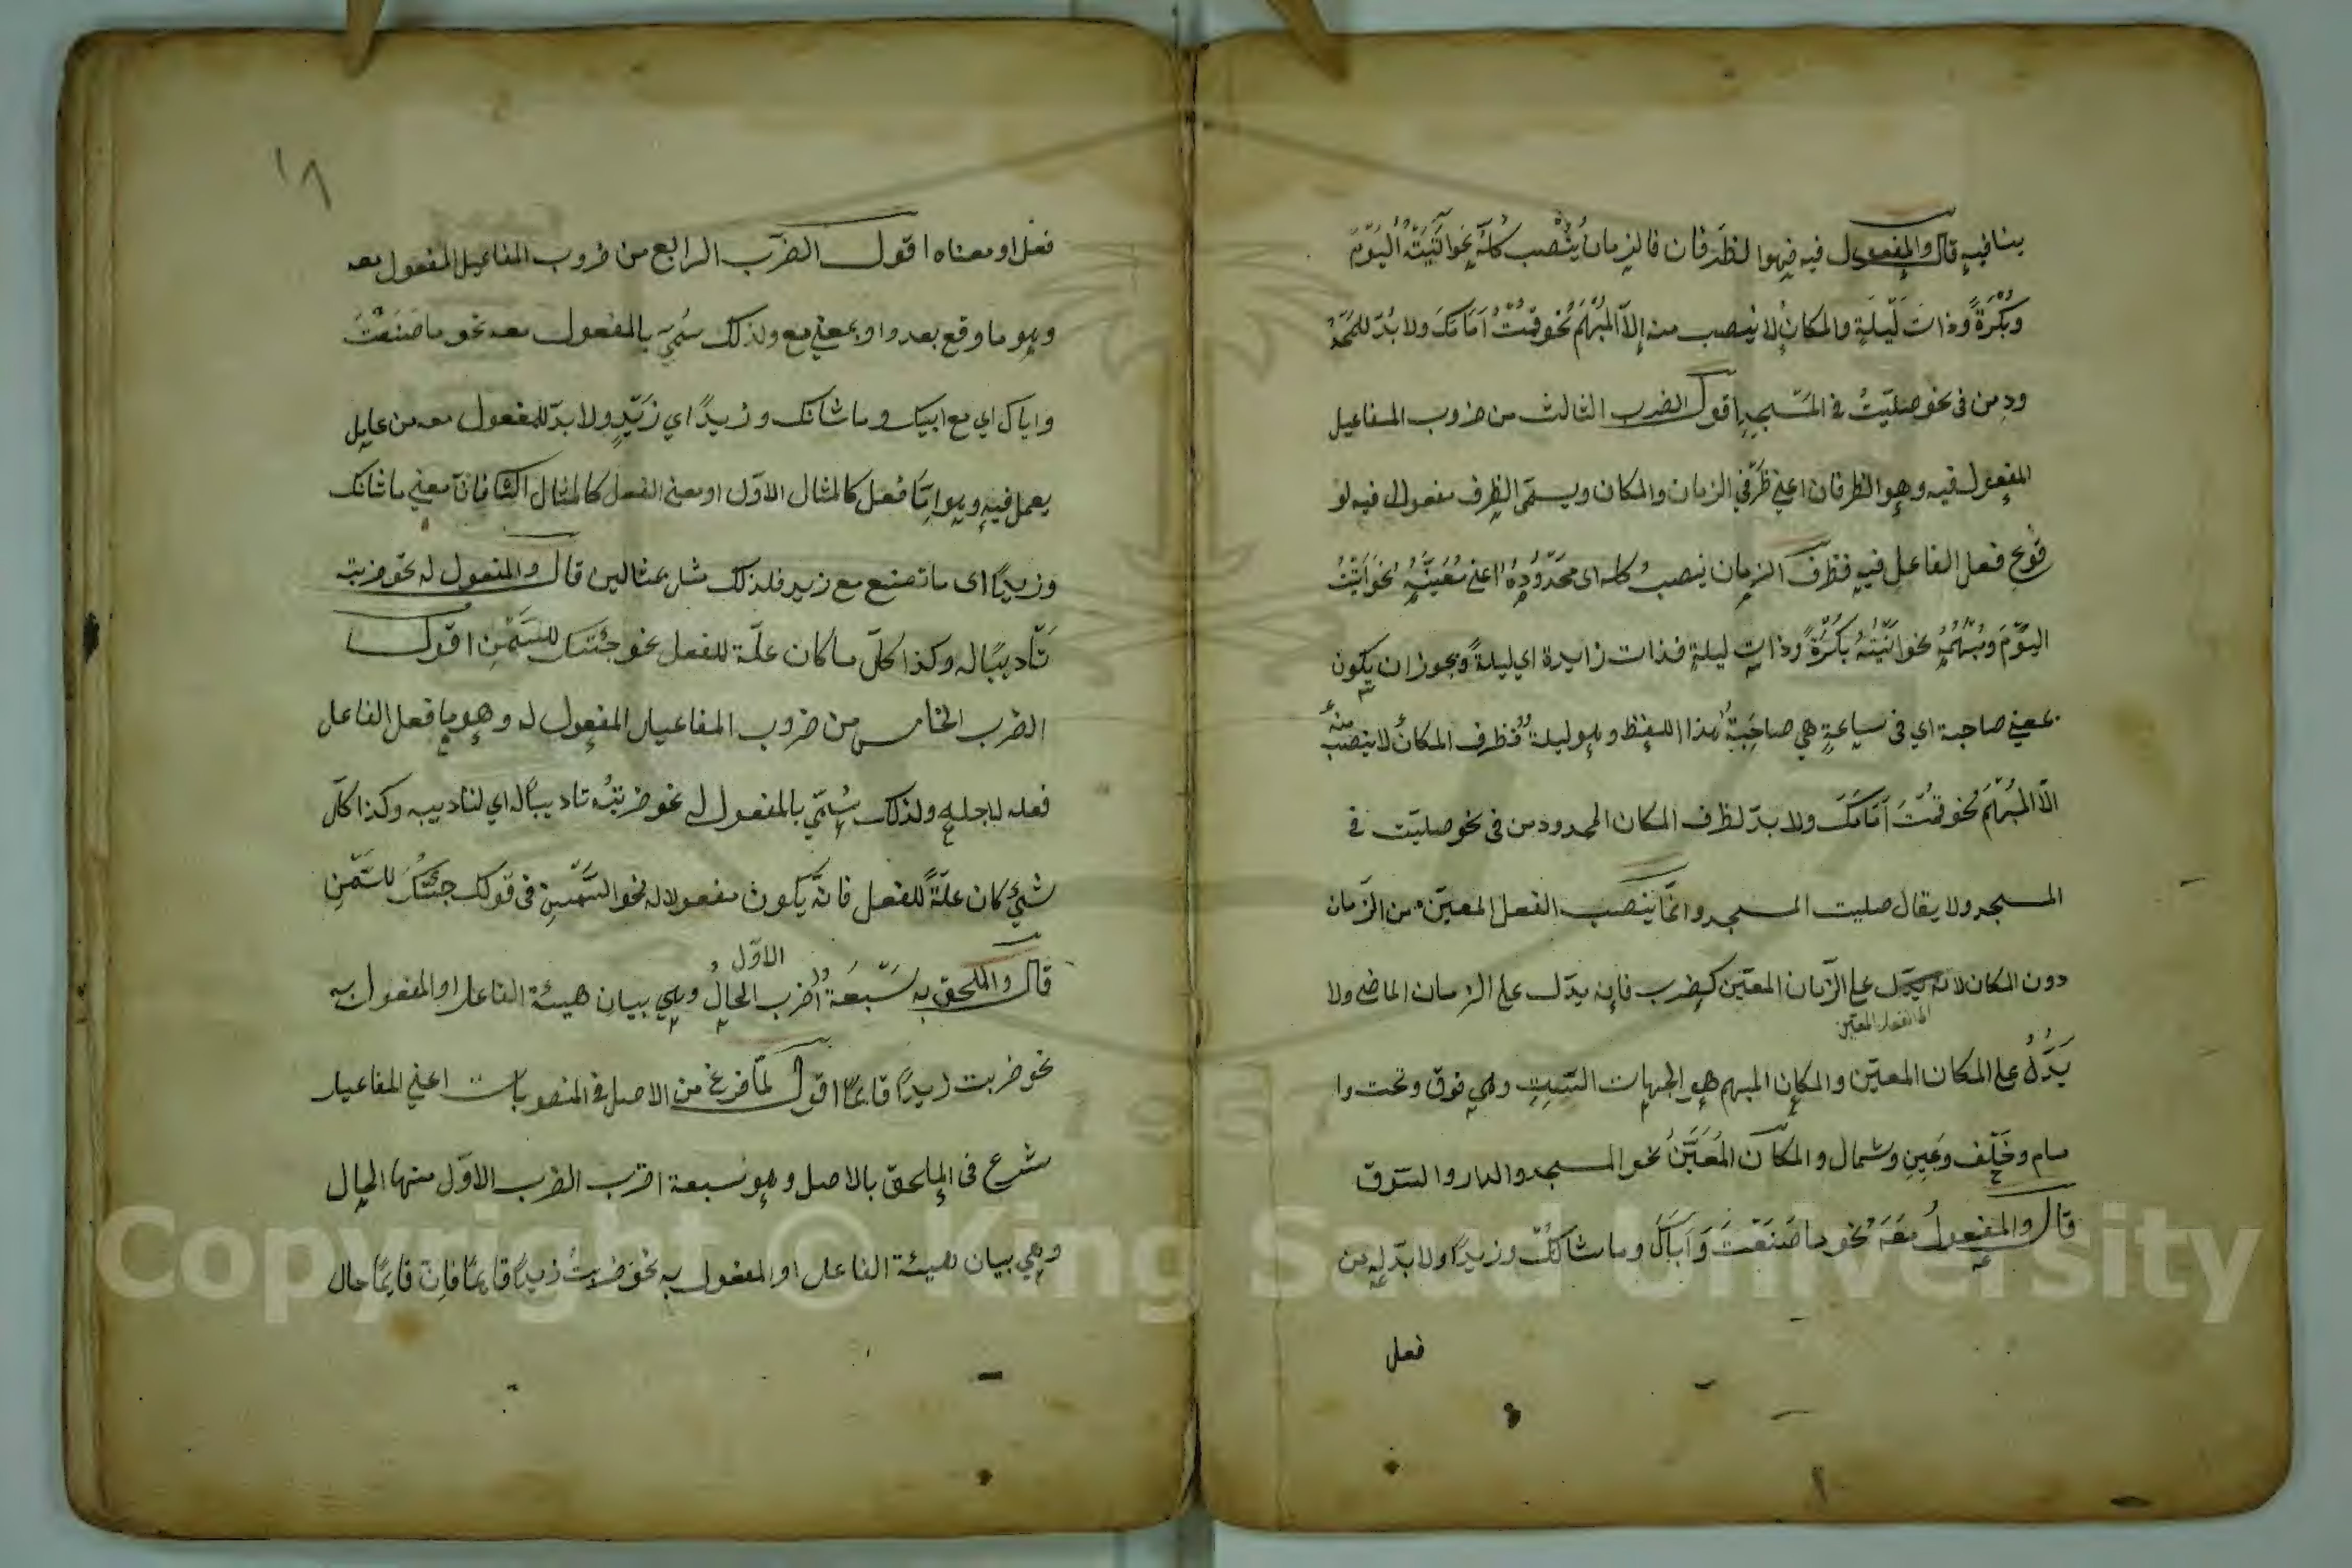 ينافيه قال والمفعول فيه فهوا لظرفان فالزمان يُنْصب كلّه نحو اتيته اليَوْمَ
وبُكْرَةً وذات لَيْلَةٍ والمكان لا ينصب منه إلاّ المُبْهَم نحو قمتُ اَمَامَكَ ولا بُدّ للمَحْدُ
ودِ من فى نحو صلّيتُ فى المسْجِدِ اقول الضرب الثالث من ضروب المفاعيل
المفعول فيه وهو الظرفان اعني ظرفي الزمان والمكان ويسمّى الظرف مفعولا فيه لو
قوع فعل الفاعل فيه فظرف الزمان ينصب كله اى محدودُهُ اعني مُعَيَّنهُ نحو اتيتُ
اليوْمَ ومُبْهَمهُ نحو اتيتهُ بُكْرَةً وذات ليلةٍ فذات زايدة اي ليلةً ويجوز ان يكون
بمعني صاحبة اي فى ساعةٍ هي صاحِبَةُ هذا اللفظ وهو ليلة فظرف المكان لا ينصب منه
الاّ المُبْهَم نحو قمْتُ اَمَامَكَ ولا بدّ لظرف المكان المحدود من فى نحو صليت فى
المسجد ولا يقال صليت المسجد وانما ينصب الفعل المعيّن من الزمان
دون المكان لانه يدل على الزمان المعيّن كضرب فانه يدل على الزمان الماضي ولا
الفعل المعين
يَدُلُّ على المكان المعيّن والمكان المبهم هو الجهات الستّ وهي فوق وتحت وا
مام وخَلْف ويمين وشمال والمكان المُعَيَّنُ نحو المسجد والدار والسّوق
قال والمفعولُ مَعَهُ نحو ما صَنَعْتَ وَاَبَاكَ وما شانكَ وزيدًا ولا بدّ له من
فعل
١٨
فعل او معناه اقول الضرب الرابع من ضروب المفاعيل المفعول معه
وهو ما وقع بعد واو بمعني مع ولذلك سُمّي بالمفعول معه نحو ما صَنَعْتَ
واباك اي مع ابيك وما شانك وزيدًا اي زَيْدٍ ولا بدّ للمفعول معه من عامل
يعمل فيه وهو امّا فعل كالمثال الاوّل او معنى الفعل كالمثال الثاني فانّ معني ما شانك
وزيدًا اى ما تصنع مع زيد فلذلك مثل بمثالين قال والمفعول له نحو ضربته
تَأديبًا له وكذا كلّ ما كان علّة للفعل نحو جئتك للسَّمْنِ اقول
الضرب الخامس من ضروب المفاعيل المفعول له وهو ما فعل الفاعل
فعله لاجله ولذلك سُمّي بالمفعول له نحو ضربتُه تاديبًا له اي لتاديبه وكذا كلّ
شيْءٍ كان علّةً للفعل فانّه يكون مفعولا له نحو السَّمْنِ فى قولك جئتك للسَّمْنِ
قال والملحق به سَبْعَة اضرب الاوّل الحال وهي بيان هيئة الفاعل او المفعول به
نحو ضربت زيدًا قايمًا اقول لمّا فرغ من الاصل فى المنصوبات اعني المفاعيل
شرع فى الملحق بالاصل وهو سبعة اضرب الضرب الاوّل منها الحال
وهي بيان هيئة الفاعل او المفعول به نحو ضربتُ زيدًا قايمًا فانّ قايمًا حال
Copyright © King Saud University
1957